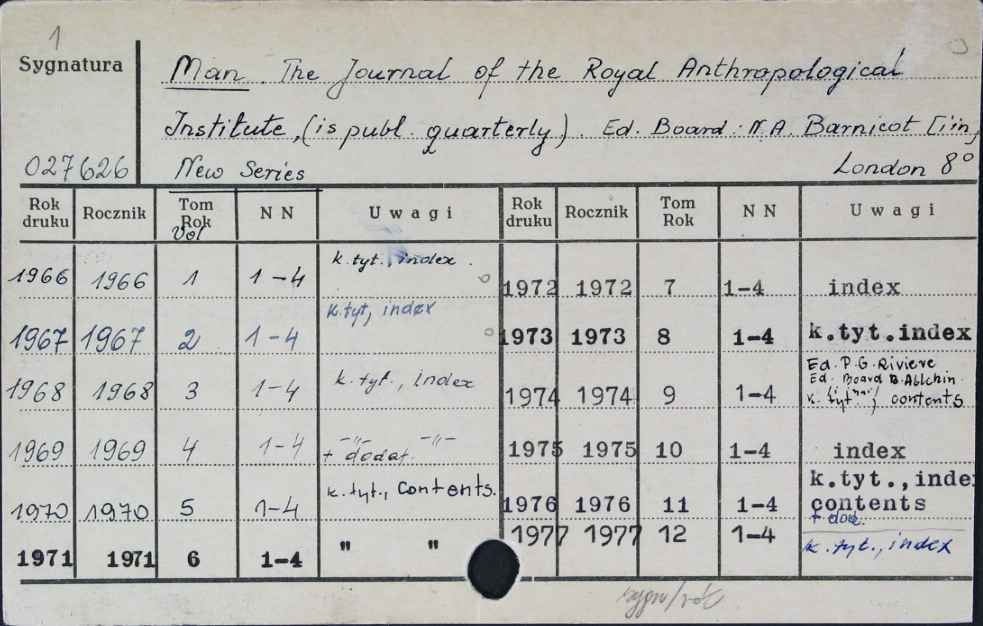 1
Sygnatura
Man. The Journal of the Royal Anthropological
Institute, (is publ. quarterly). Ed. Board: N.A. Barnicot [iin,
027626 New Series London 8°
Rok druku Rocznik Tom Rok Vol NN Uwagi Rok druku Rocznik Tom Rok NN Uwagi
1966 1966 1 1-4 k.tyt., index. 1972 1972 7 1-4 index
1967 1967 2 1-4 k.tyt, index 1973 1973 8 1-4 k.tyt.index
1968 1968 3 1-4 k.tyt., index 1974 1974 9 1-4 Ed. P.G. Riviere
Ed. Board B. Allchin
k. tyt, contents
1969 1969 4 1-4 -"- -"- 1975 1975 10 1-4 index
+ dodat.
1970 1970 5 1-4 k.tyt., Contents. 1976 1976 11 1-4 k.tyt., inde
contents
+ dod.
1971 1971 6 1-4 " " 1977 1977 12 1-4 k.tyt., index